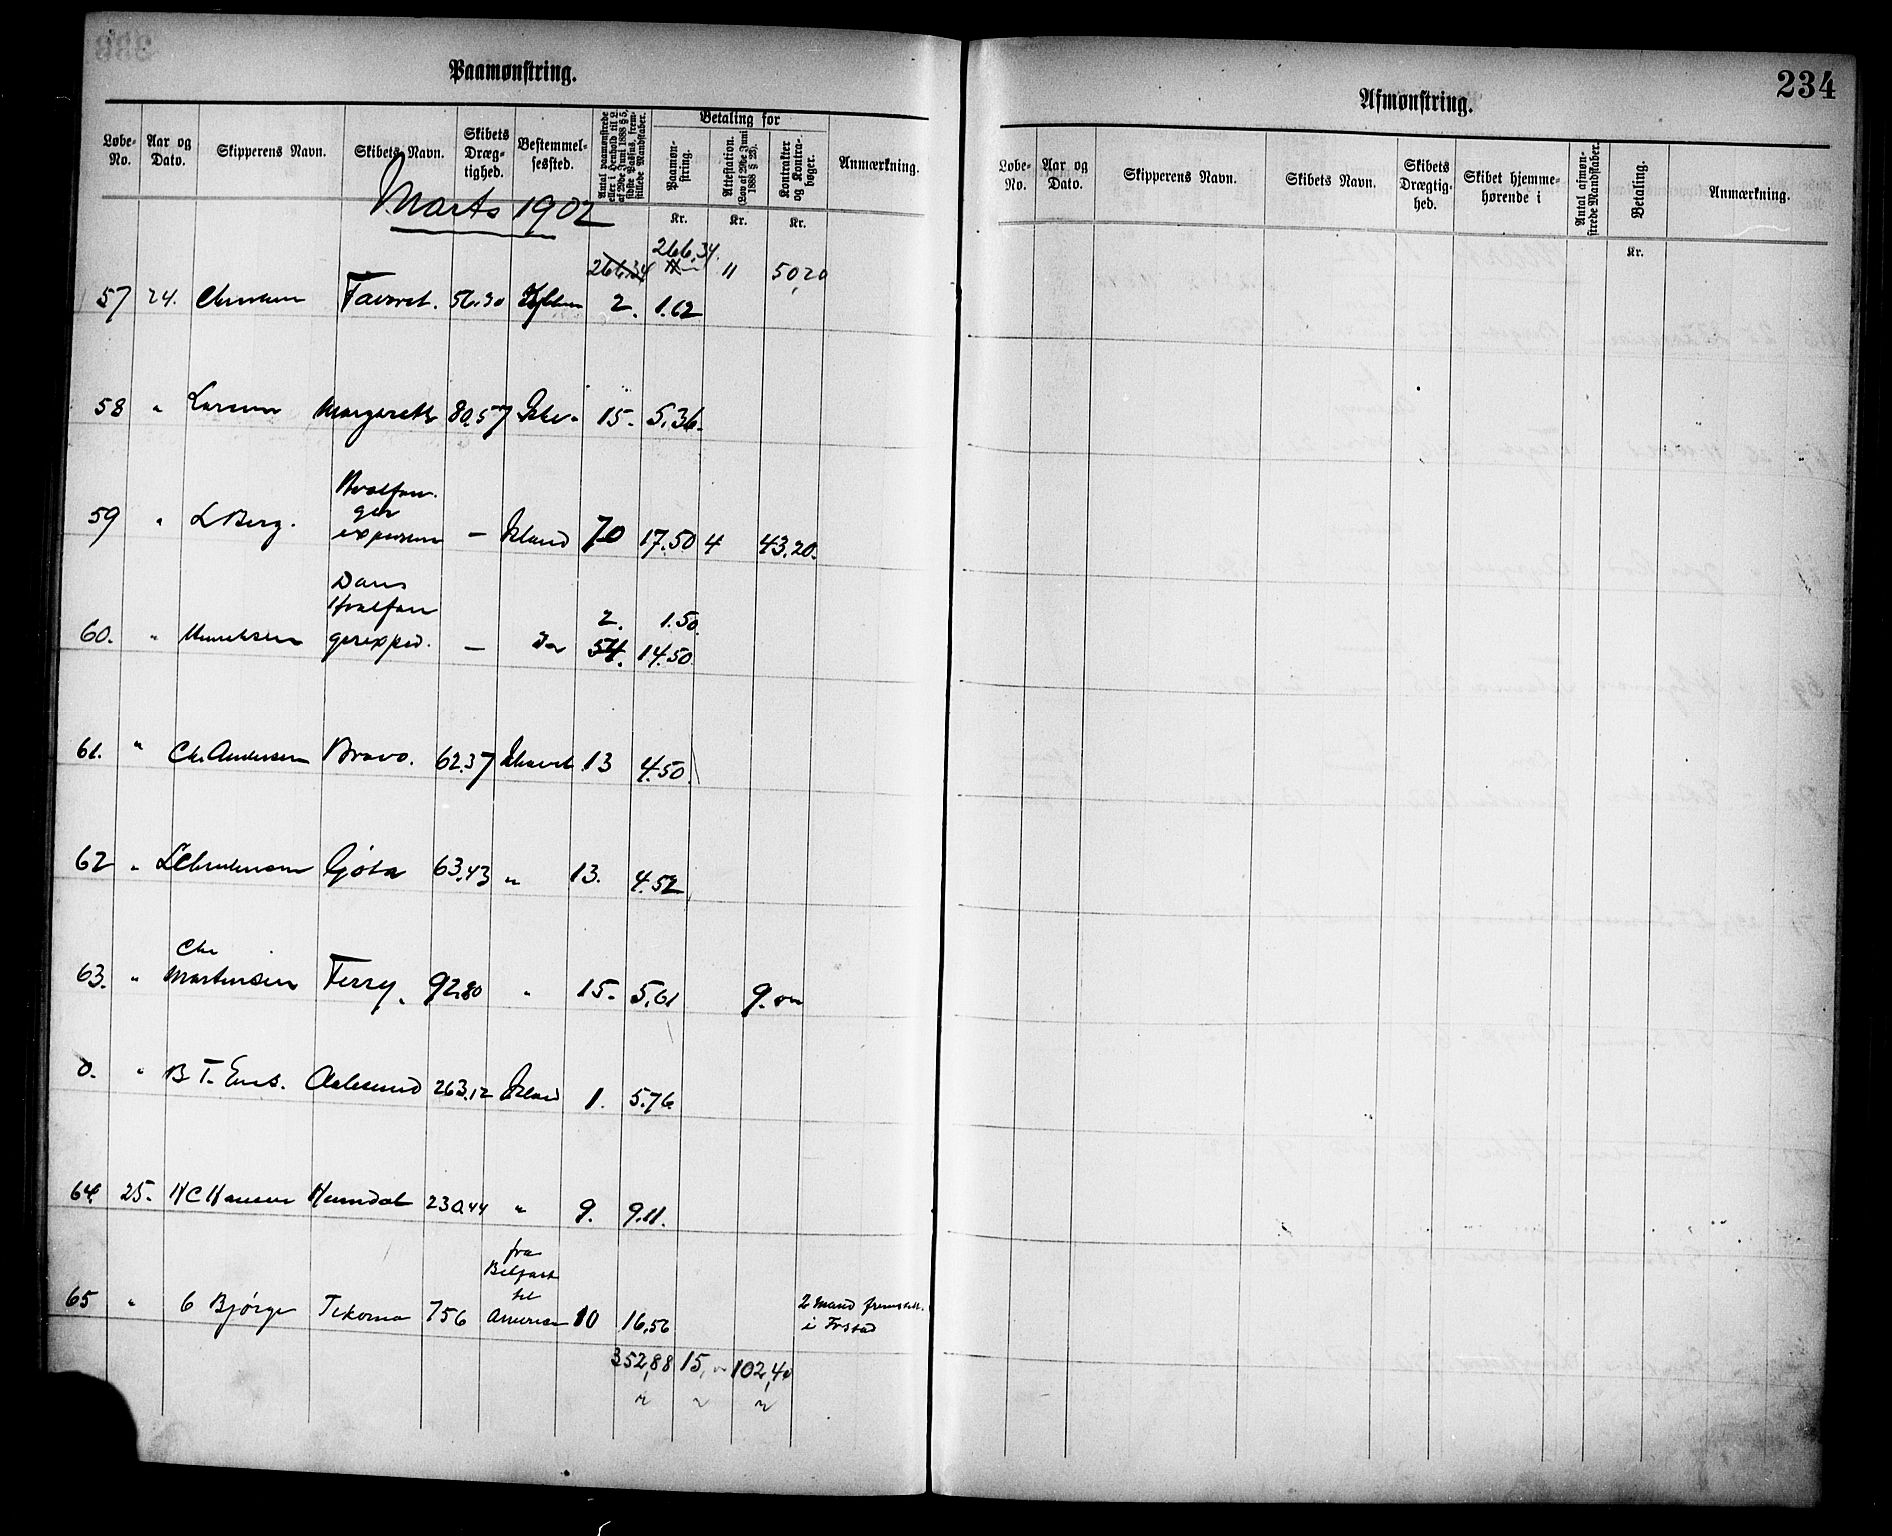 Paamønstring.
Løbe-No.
Aar og Dato.
Skipperens Navn.
Skibets Navn.
Skibets Dræg-tighed.
Bestemmel-sessted.
Antal paamønstrede eller i Henhold til L. af 29de Juni 1888 § 5, sidste Passus, frem-stillede Mandskaber.
Betaling for
Paamøn-string.
Attestation. (Lov af 29de Juni 1888 § 23).
Kontrakter og Kontra-bøger.
Anmærkning.
Kr. Kr. Kr.
Marts 1902
266.34 266.34. 11 50,20
57 24. Favorit. 56.30 2. 1.62
58 " Larsen Margareth 80,57 15. 5.36.
59 " L Berg. Hvalfan-
ger
expeditionen — Island 70 17.50 4 43.20.
60. " Dans
Hvalfan
gerexped. — 2. 1.50.
54. 14.50
61. " Chr. Andersen Bravo. 62.37 13 4.50.
62 " Gjøta 63,43 " 13. 4.52
63. " Chr
Martensen Terry. 92.80 " 15. 5.61 9.00
0. " B T. Aalesund 263.12 Island 1. 5.76.
64. 25. H C Hansen Heimdal 230.44 " 9. 9.11.
65 " Bjørge Tekoma 756 fra
Belfast
til
America 10 16,56 2 Mand fremstill.
i Frstad
352,88 15, 102,40
Afmønstring.
234
Løbe-No.
Aar og Dato.
Skipperens Navn.
Skibets Navn.
Skibets Drægtig-hed.
Skibet hjemme-hørende i
Antal afmøn-strede Mandskaber.
Betaling.
Anmærkning.
Kr.